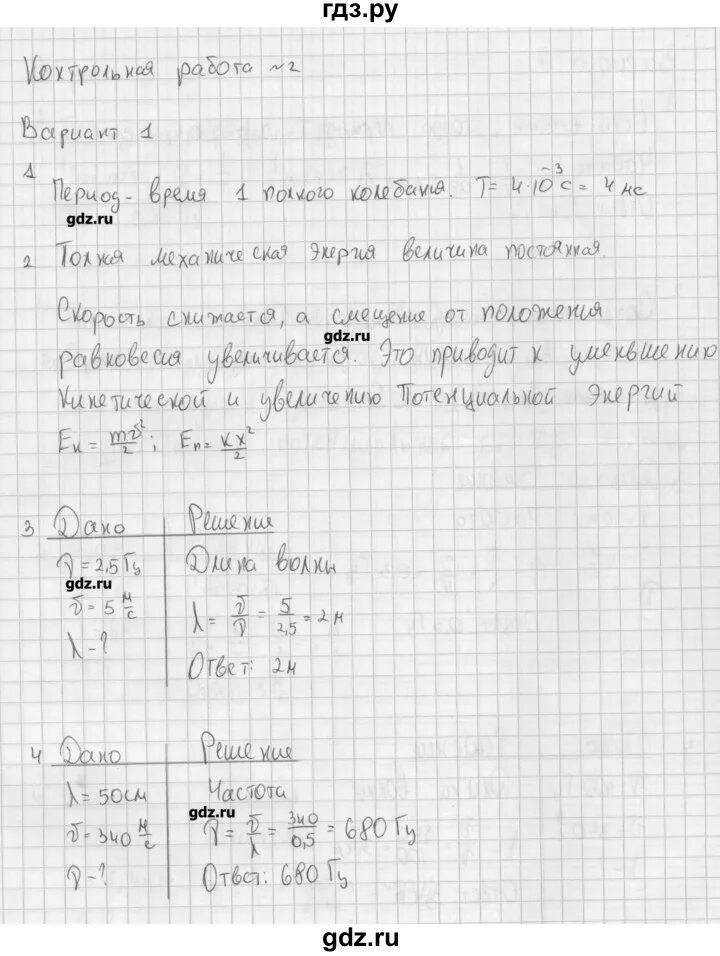 гдз.ру
Контрольная работа №2
Вариант 1
1 Период - время 1 полного колебания. T = 4·10⁻³ с = 4 мс
gdz.ru
2 Полная механическая энергия величина постоянная.
Скорость снижается, а смещение от положения
gdz.ru
равновесия увеличивается. Это приводит к уменьшению
кинетической и увеличению потенциальной энергий
Eк = mv²/2; Eп = kx²/2
3 Дано
ν = 2,5 Гц
gdz.ru
v = 5 м/с
λ - ?
Решение
Длина волны
λ = v/ν = 5/2,5 = 2 м
Ответ: 2м
4 Дано
λ = 50 см
v = 340 м/с
ν - ?
Решение
Частота
gdz.ru
ν = v/λ = 340/0,5 = 680 Гц
Ответ: 680 Гц
gdz.ru